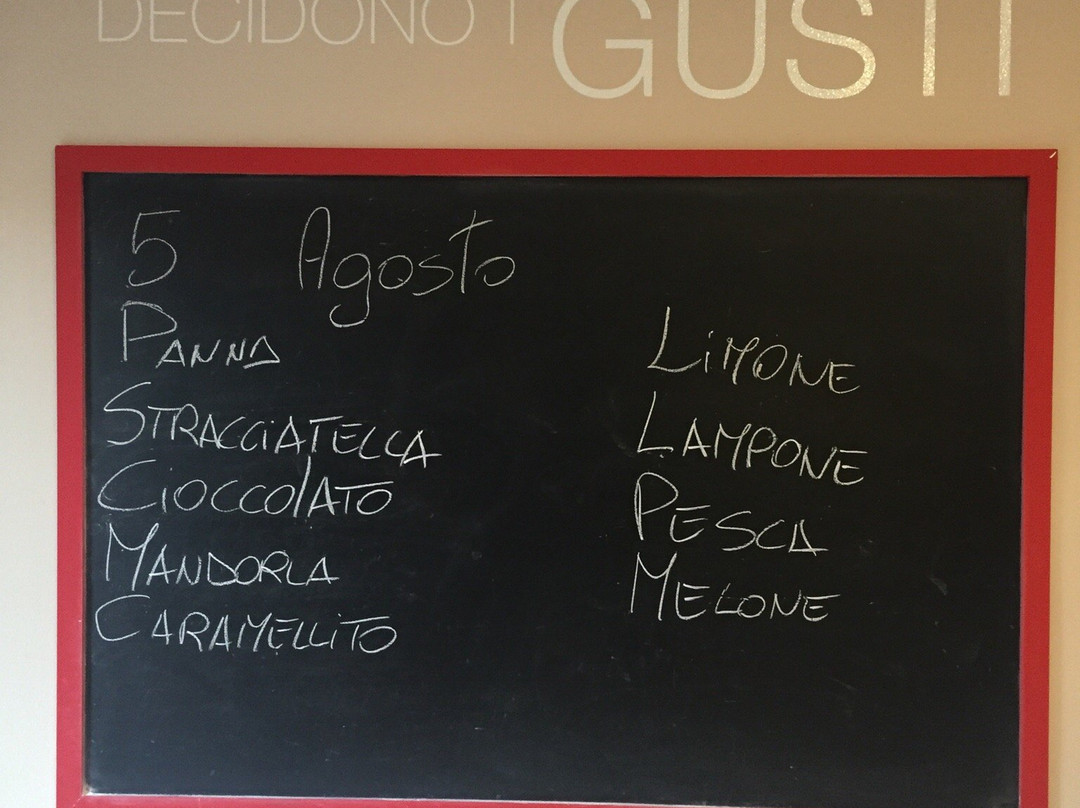 DECIDONO I GUSTI
5 Agosto
PANNA
STRACCIATELLA
CIOCCOLATO
MANDORLA
CARAMELLITO
LIMONE
LAMPONE
PESCA
MELONE